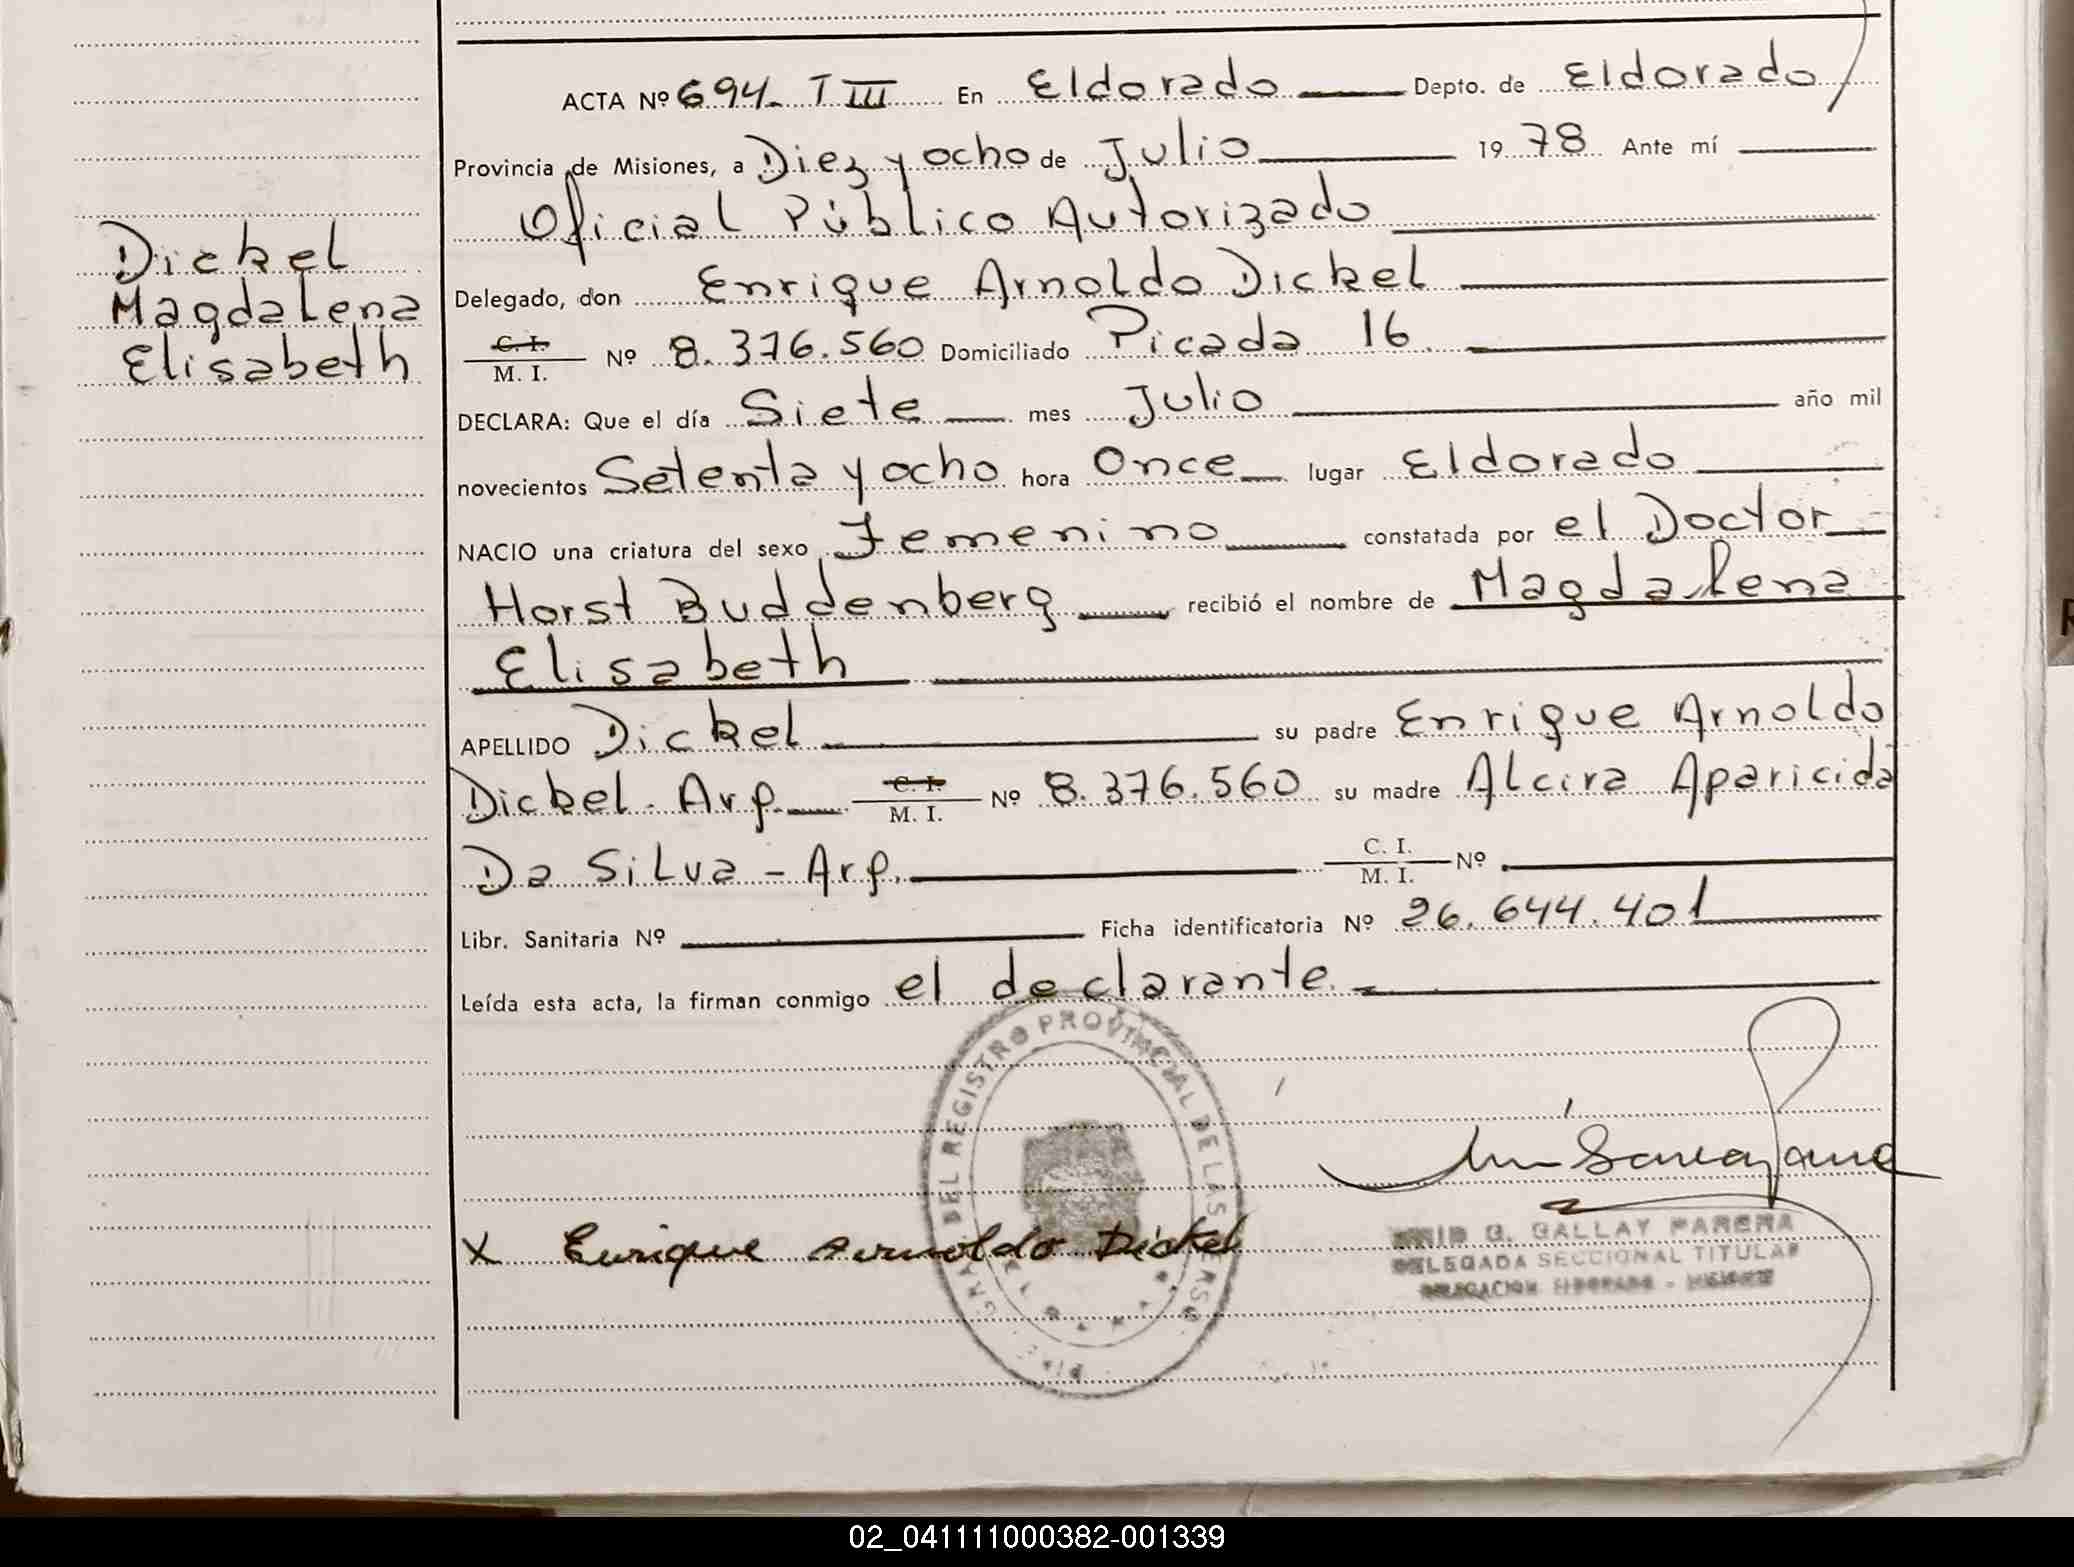 ACTA Nº 694. T III En Eldorado Depto. de Eldorado
Provincia de Misiones, a Diez y ocho de Julio 1978 Ante mí
Oficial Público Autorizado
Dickel
Magdalena
Elisabeth
Delegado, don Enrique Arnoldo Dickel
C. I.
M. I. Nº 8.376.560 Domiciliado Picada 16
DECLARA: Que el día Siete mes Julio año mil
novecientos Setenta y ocho hora Once lugar Eldorado
NACIO una criatura del sexo Femenino constatada por el Doctor
Horst Buddenberg recibió el nombre de Magdalena
Elisabeth
APELLIDO Dickel su padre Enrique Arnoldo
Dickel. Arg. C. I.
M. I. Nº 8.376.560 su madre Alcira Aparicida
Da Silva - Arg. C. I.
M. I. Nº
Libr. Sanitaria Nº Ficha identificatoria Nº 26.644.401
Leída esta acta, la firman conmigo el declarante.
DEL REGISTRO PROVINCIAL DE LAS PERSO
X Enrique Arnoldo Dickel
G. GALLAY PARERA
DELEGADA SECCIONAL TITULAR
DELEGACION ELDORADO - MISIONES
02_041111000382-001339